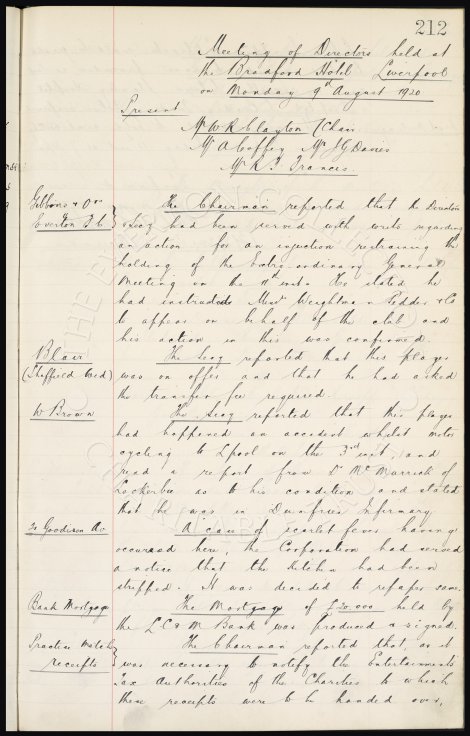 212
Meeting of Directors held at
the Bradford Hotel Liverpool
on Monday 9th August 1920
Present
Mr W R Clayton (Chair
Mr A Coffey Mr J G Davies
Mr R. J. Francis.
Gibbons & Ors
Everton F. C.
The Chairman reported that the Directors
& Secy had been served with writs regarding
an action for an injuction restraining the
holding of the Extra-ordinary General
Meeting on the 11th inst. He stated he
had instructed Messrs Weightman Pedder & Co
to appear on behalf of the club and
his action in this was confirmed.
Blair
(Sheffield Wed)
The Secy reported that this player
was on offer and that he had asked
the transfer fee required.
W Brown
The Secy reported that this player
had happened an accident whilst motor
cycling to Lpool on the 3rd inst, and
read a report from Dr of
Lockerbie as to his condition and stated
that he was in Dumfries Infirmary.
Goodison Av.
A case of scarlet fever having
occurred here, the Corporation had served
a notice that the kitchen had been
stripped. It was decided to repaper same.
Bank Mortgage
The Mortgage of £20,000 held by
the L C & M Bank was produced & signed.
Practice Match
receipts
The Chairman reported that, as it
was necessary to notify the Entertainments
Tax Authorities of the Charities to which
these receipts were to be handed over,